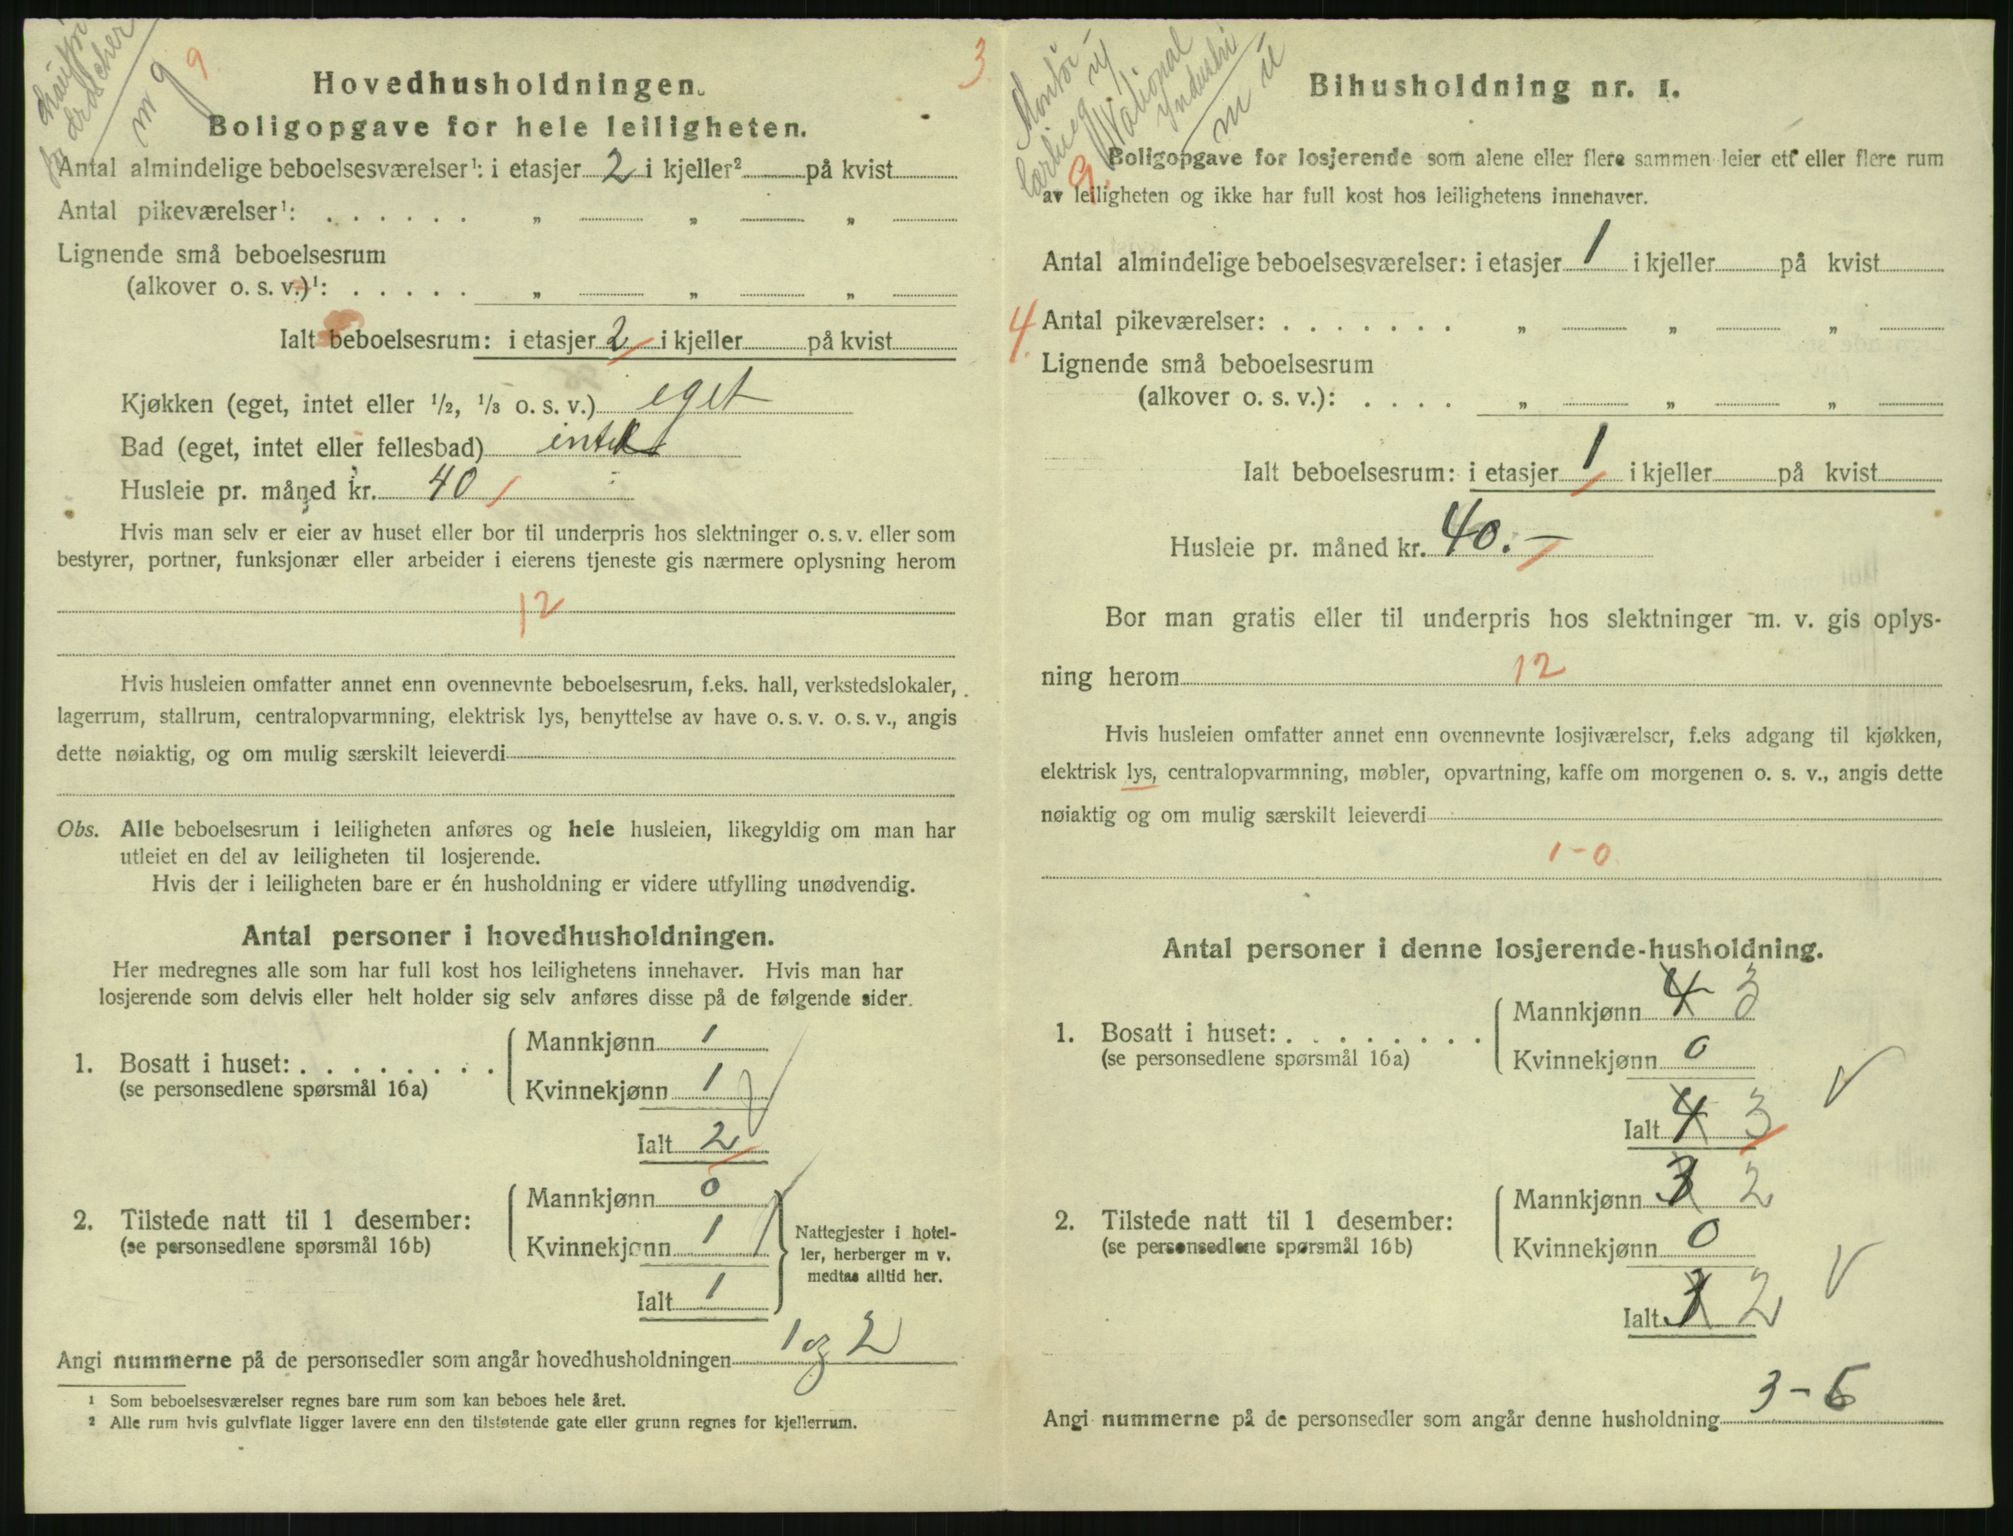 m 9 9
3
Hovedhusholdningen.
Boligopgave for hele leiligheten.
Antal almindelige beboelsesværelser¹: i etasjer 2 i kjeller² på kvist
Antal pikeværelser¹: . . . . . . „ „ „
Lignende små beboelsesrum
(alkover o. s. v.)¹: . . . . . „ „ „
Ialt beboelsesrum: i etasjer 2 i kjeller på kvist
Kjøkken (eget, intet eller 1/2, 1/3 o. s. v.) eget
Bad (eget, intet eller fellesbad) intet
Husleie pr. måned kr. 40
Hvis man selv er eier av huset eller bor til underpris hos slektninger o. s. v. eller som
bestyrer, portner, funksjonær eller arbeider i eierens tjeneste gis nærmere oplysning herom
12
Hvis husleien omfatter annet enn ovennevnte beboelsesrum, f.eks. hall, verkstedslokaler,
lagerrum, stallrum, centralopvarmning, elektrisk lys, benyttelse av have o. s. v. o. s. v., angis
dette nøiaktig, og om mulig særskilt leieverdi
Obs. Alle beboelsesrum i leiligheten anføres og hele husleien, likegyldig om man har
utleiet en del av leiligheten til losjerende.
Hvis der i leiligheten bare er én husholdning er videre utfylling unødvendig.
Antal personer i hovedhusholdningen.
Her medregnes alle som har full kost hos leilighetens innehaver. Hvis man har
losjerende som delvis eller helt holder sig selv anføres disse på de følgende sider.
1. Bosatt i huset: . . . . . . . .
(se personsedlene spørsmål 16a)
Mannkjønn 1
Kvinnekjønn 1
Ialt 2
2. Tilstede natt til 1 desember:
(se personsedlene spørsmål 16b)
Mannkjønn 0
Kvinnekjønn 1
Ialt 1
Nattegjester i hotel-
ler, herberger m v.
medtas alltid her.
Angi nummerne på de personsedler som angår hovedhusholdningen 1 og 2
1 Som beboelsesværelser regnes bare rum som kan beboes hele året.
2 Alle rum hvis gulvflate ligger lavere enn den tilstøtende gate eller grunn regnes for kjellerrum.
Montør
National
Industri
9.
Bihusholdning nr. 1.
Boligopgave for losjerende som alene eller flere sammen leier ett eller flere rum
av leiligheten og ikke har full kost hos leilighetens innehaver.
Antal almindelige beboelsesværelser: i etasjer 1 i kjeller på kvist
4
Antal pikeværelser: . . . . . . . „ „ „
Lignende små beboelsesrum
(alkover o. s. v.): . . . . „ „ „
Ialt beboelsesrum: i etasjer 1 i kjeller på kvist
Husleie pr. måned kr. 40.—
Bor man gratis eller til underpris hos slektninger m. v. gis oplys-
ning herom 12
Hvis husleien omfatter annet enn ovennevnte losjiværelser, f.eks adgang til kjøkken,
elektrisk lys, centralopvarmning, møbler, opvartning, kaffe om morgenen o. s. v., angis dette
nøiaktig og om mulig særskilt leieverdi
1-0
Antal personer i denne losjerende-husholdning.
1. Bosatt i huset: . . . . . . . .
(se personsedlene spørsmål 16a)
Mannkjønn 4 3
Kvinnekjønn 0
Ialt 4 3
2. Tilstede natt til 1 desember:
(se personsedlene spørsmål 16b)
Mannkjønn 3 2
Kvinnekjønn 0
Ialt 3 2
Angi nummerne på de personsedler som angår denne husholdning 3-5